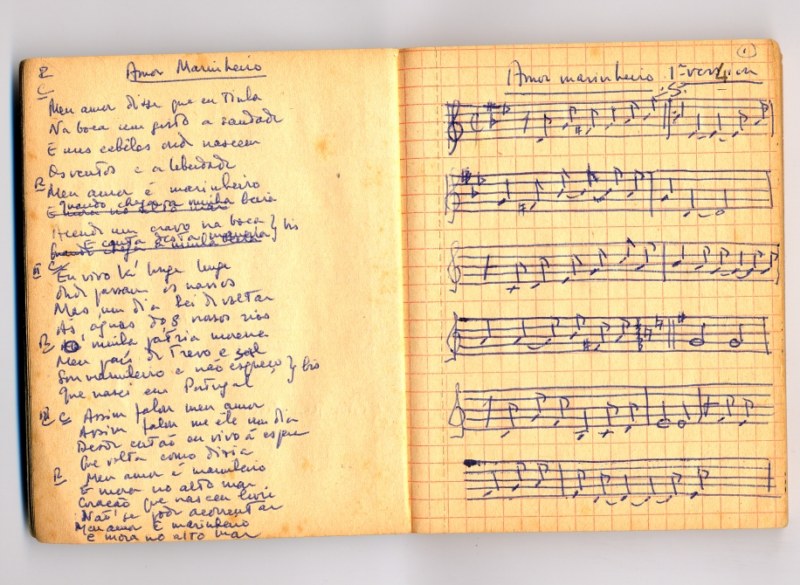 Amor Marinheiro
C
Meu amor disse que eu tinha
Na boca um gosto a saudade
E uns cabelos onde nascem
Os ventos e a liberdade
R Meu amor é marinheiro
Quando chega à minha beira
E mora no alto mar
Acende um cravo na boca } bis
E canta desta maneira
II C Eu vivo lá longe longe
Onde passam os navios
Mas um dia hei de voltar
Às aguas dos nossos rios
R minha pátria morena
Meu país de trevo e sal
Sou marinheiro e não esqueço } bis
Que nasci em Portugal
III C Assim falou meu amor
Assim falou me ele um dia
Desde então eu vivo à espera
Que volte como dizia
R Meu amor é marinheiro
E mora no alto mar
Coração que nasceu livre
Não se pode acorrentar
Meu amor é marinheiro
E mora no alto mar
1
Amor marinheiro 1ª